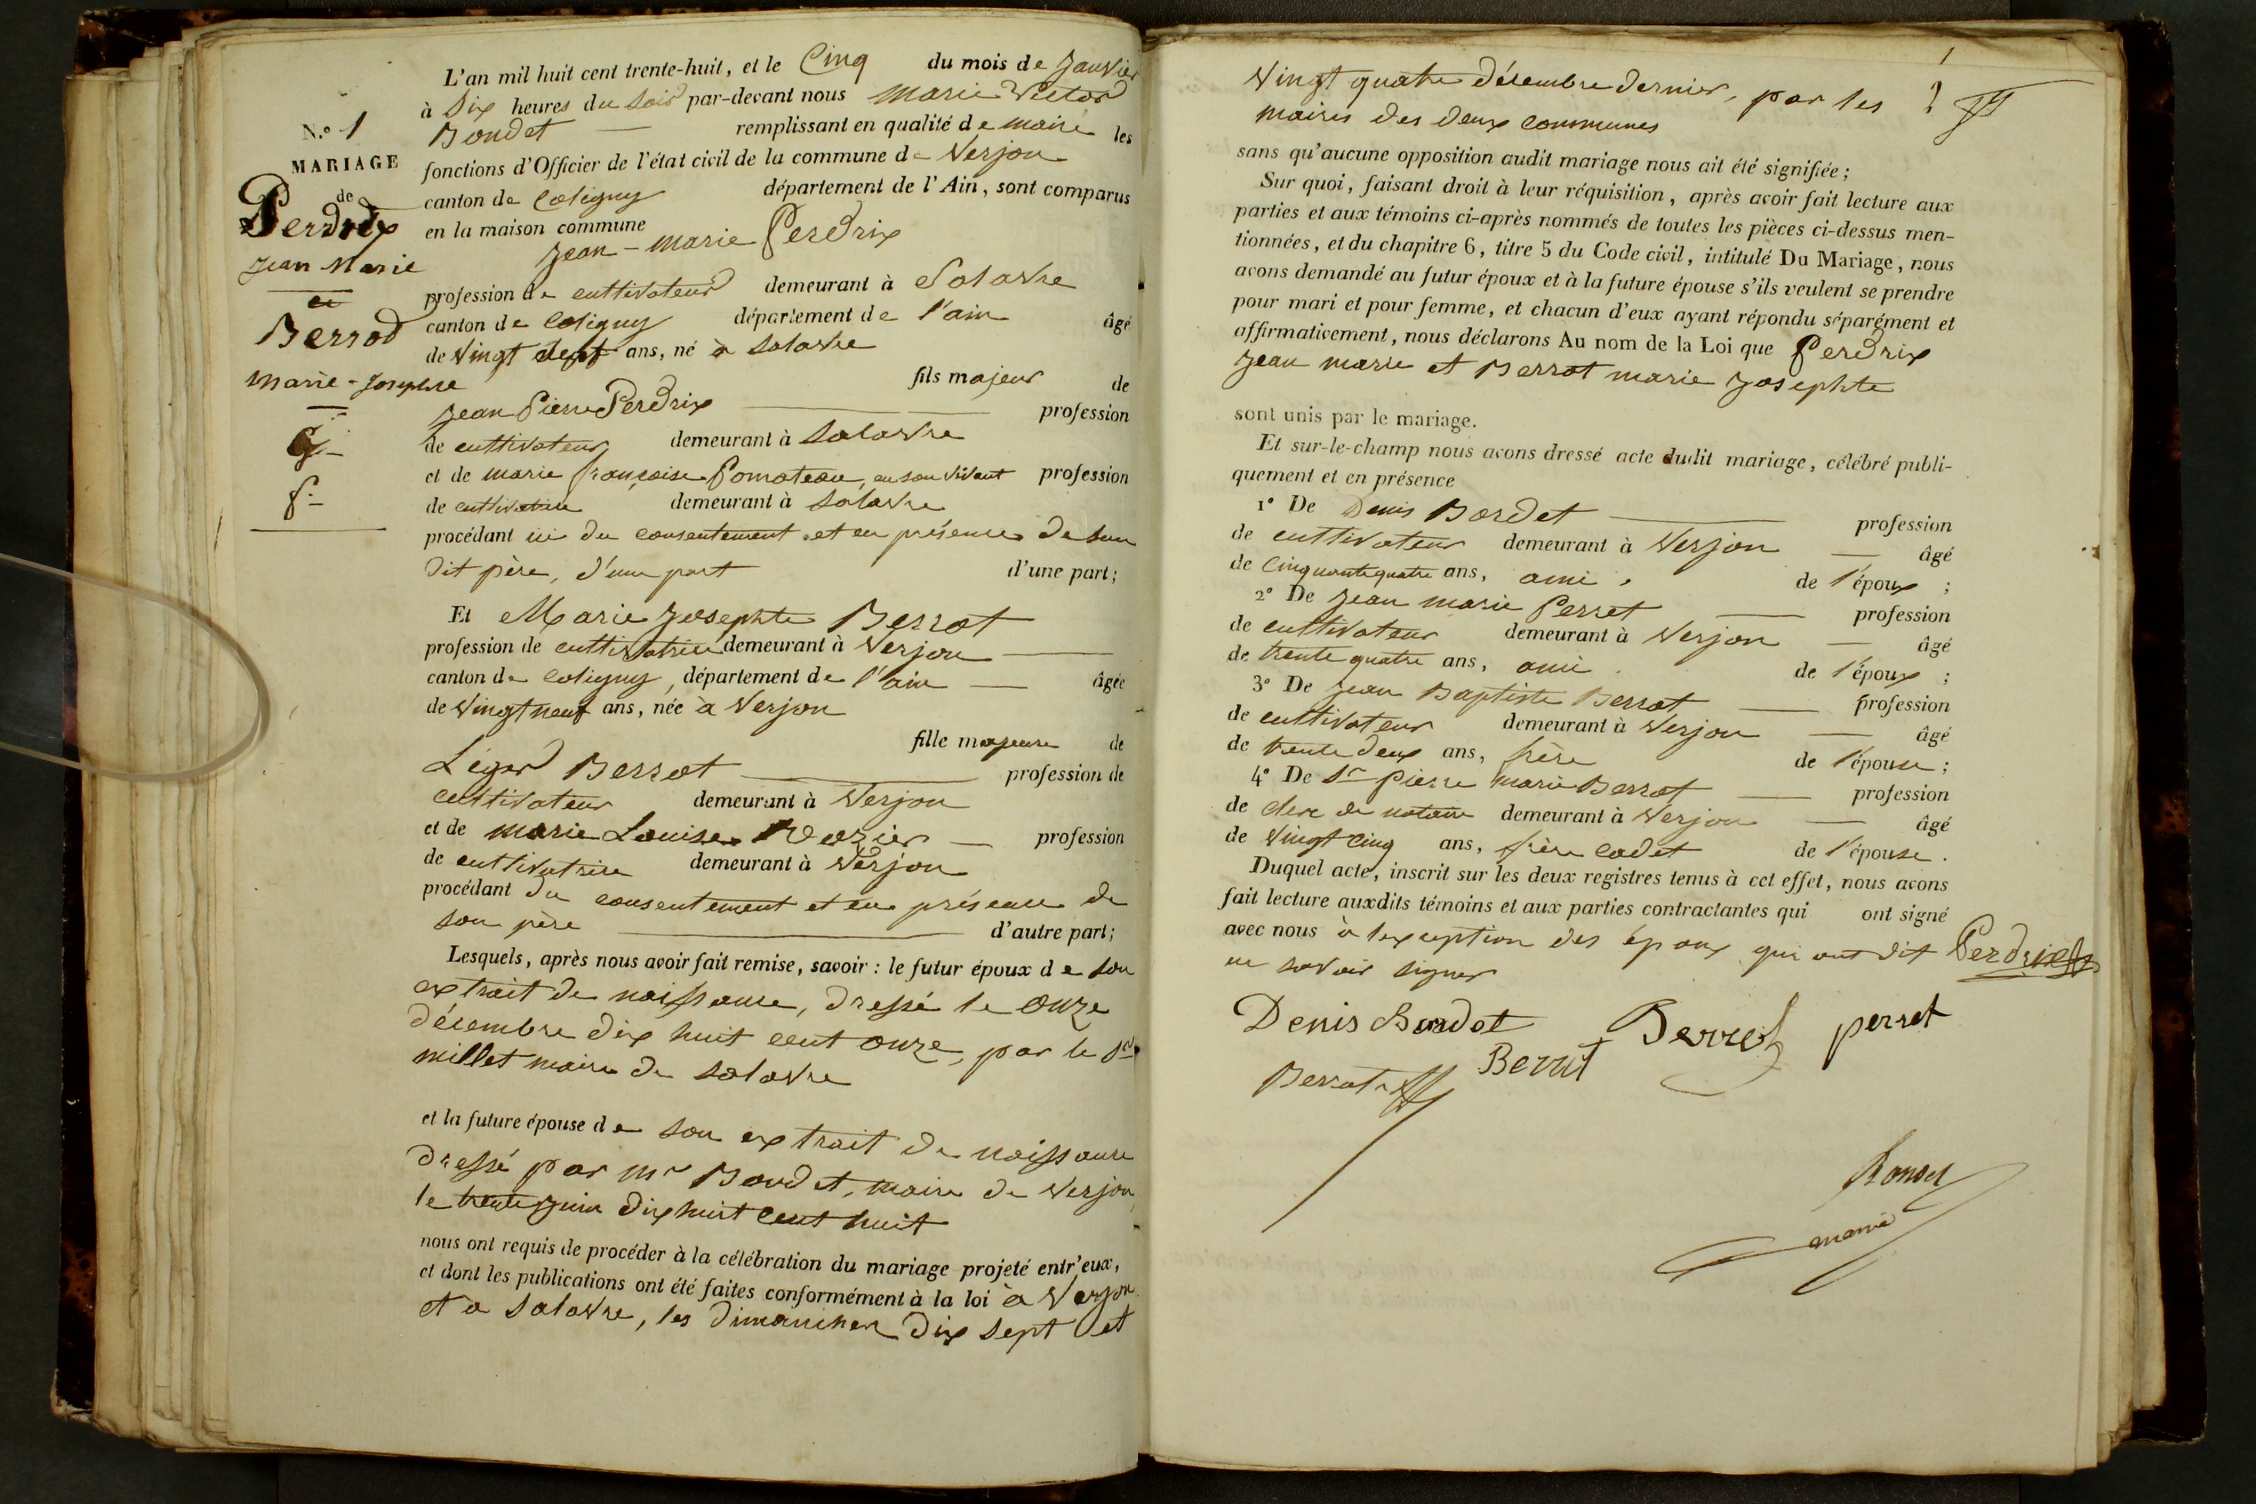 L'an mil huit cent trente-huit, et le Cinq du mois de Janvier
à Six heures du Soir par-devant nous Marie Victor
Bondet remplissant en qualité de maire les
fonctions d'Officier de l'état civil de la commune de Verjon
canton de Coligny département de l'Ain, sont comparus
en la maison commune
Jean-Marie Perdrix
profession de cultivateur demeurant à Salavre
canton de Coligny département de l'ain âgé
de Vingt ans, né à Salavre
fils majeur de
Jean Pierre Perdrix profession
de cultivateur demeurant à Salavre
et de marie françoise Pomateau, en son vivant profession
de cultivatrice demeurant à Salavre
procédant ici du consentement et en présence de son
dit père, d'une part d'une part;
Et Marie Josephte Berrot
profession de cultivatrice demeurant à Verjon
canton de Coligny, département de l'ain âgée
de Vingt neuf ans, née à Verjon
fille majeure de
Léger Berrot profession de
cultivateur demeurant à Verjon
et de marie Louise profession
de cultivatrice demeurant à Verjon
procédant du consentement et en présence de
son père d'autre part;
Lesquels, après nous avoir fait remise, savoir : le futur époux de son
extrait de naissance, dressé le onze
décembre dix huit cent onze, par le Sr
millet maire de Salavre
et la future épouse de son extrait de naissance
dressé par Mr Bondet, maire de Verjon,
le trente juin dix huit cent huit
nous ont requis de procéder à la célébration du mariage projeté entr'eux,
et dont les publications ont été faites conformément à la loi à Verjon
et à Salavre, les dimanches dix sept et
N.° 1
MARIAGE
de
Perdrix
Jean Marie
et
Berrod
Marie-Josephte
Vingt quatre décembre dernier, par les
maires des deux communes
sans qu'aucune opposition audit mariage nous ait été signifiée;
Sur quoi, faisant droit à leur réquisition, après avoir fait lecture aux
parties et aux témoins ci-après nommés de toutes les pièces ci-dessus men-
tionnées, et du chapitre 6, titre 5 du Code civil, intitulé Du Mariage, nous
avons demandé au futur époux et à la future épouse s'ils veulent se prendre
pour mari et pour femme, et chacun d'eux ayant répondu séparément et
affirmativement, nous déclarons Au nom de la Loi que Perdrix
Jean marie et Berrot marie Josephte
sont unis par le mariage.
Et sur-le-champ nous avons dressé acte dudit mariage, célébré publi-
quement et en présence
1° De Denis Bordet profession
de cultivateur demeurant à Verjon âgé
de Cinquante quatre ans, ami de l'époux ;
2° De Jean marie Perret profession
de cultivateur demeurant à Verjon âgé
de trente quatre ans, ami de l'époux ;
3° De Jean Baptiste Berrot profession
de cultivateur demeurant à Verjon âgé
de trente deux ans, frère de l'épouse ;
4° De Sr pierre marie Berrot profession
de clerc de notaire demeurant à Verjon âgé
de Vingt Cinq ans, frère cadet de l'épouse.
Duquel acte, inscrit sur les deux registres tenus à cet effet, nous avons
fait lecture auxdits témoins et aux parties contractantes qui ont signé
avec nous à l'exception des époux qui ont dit
ne savoir signer
Perdrix
Denis Bondet Berrot perret
Berrot Berrut
Bondet
maire